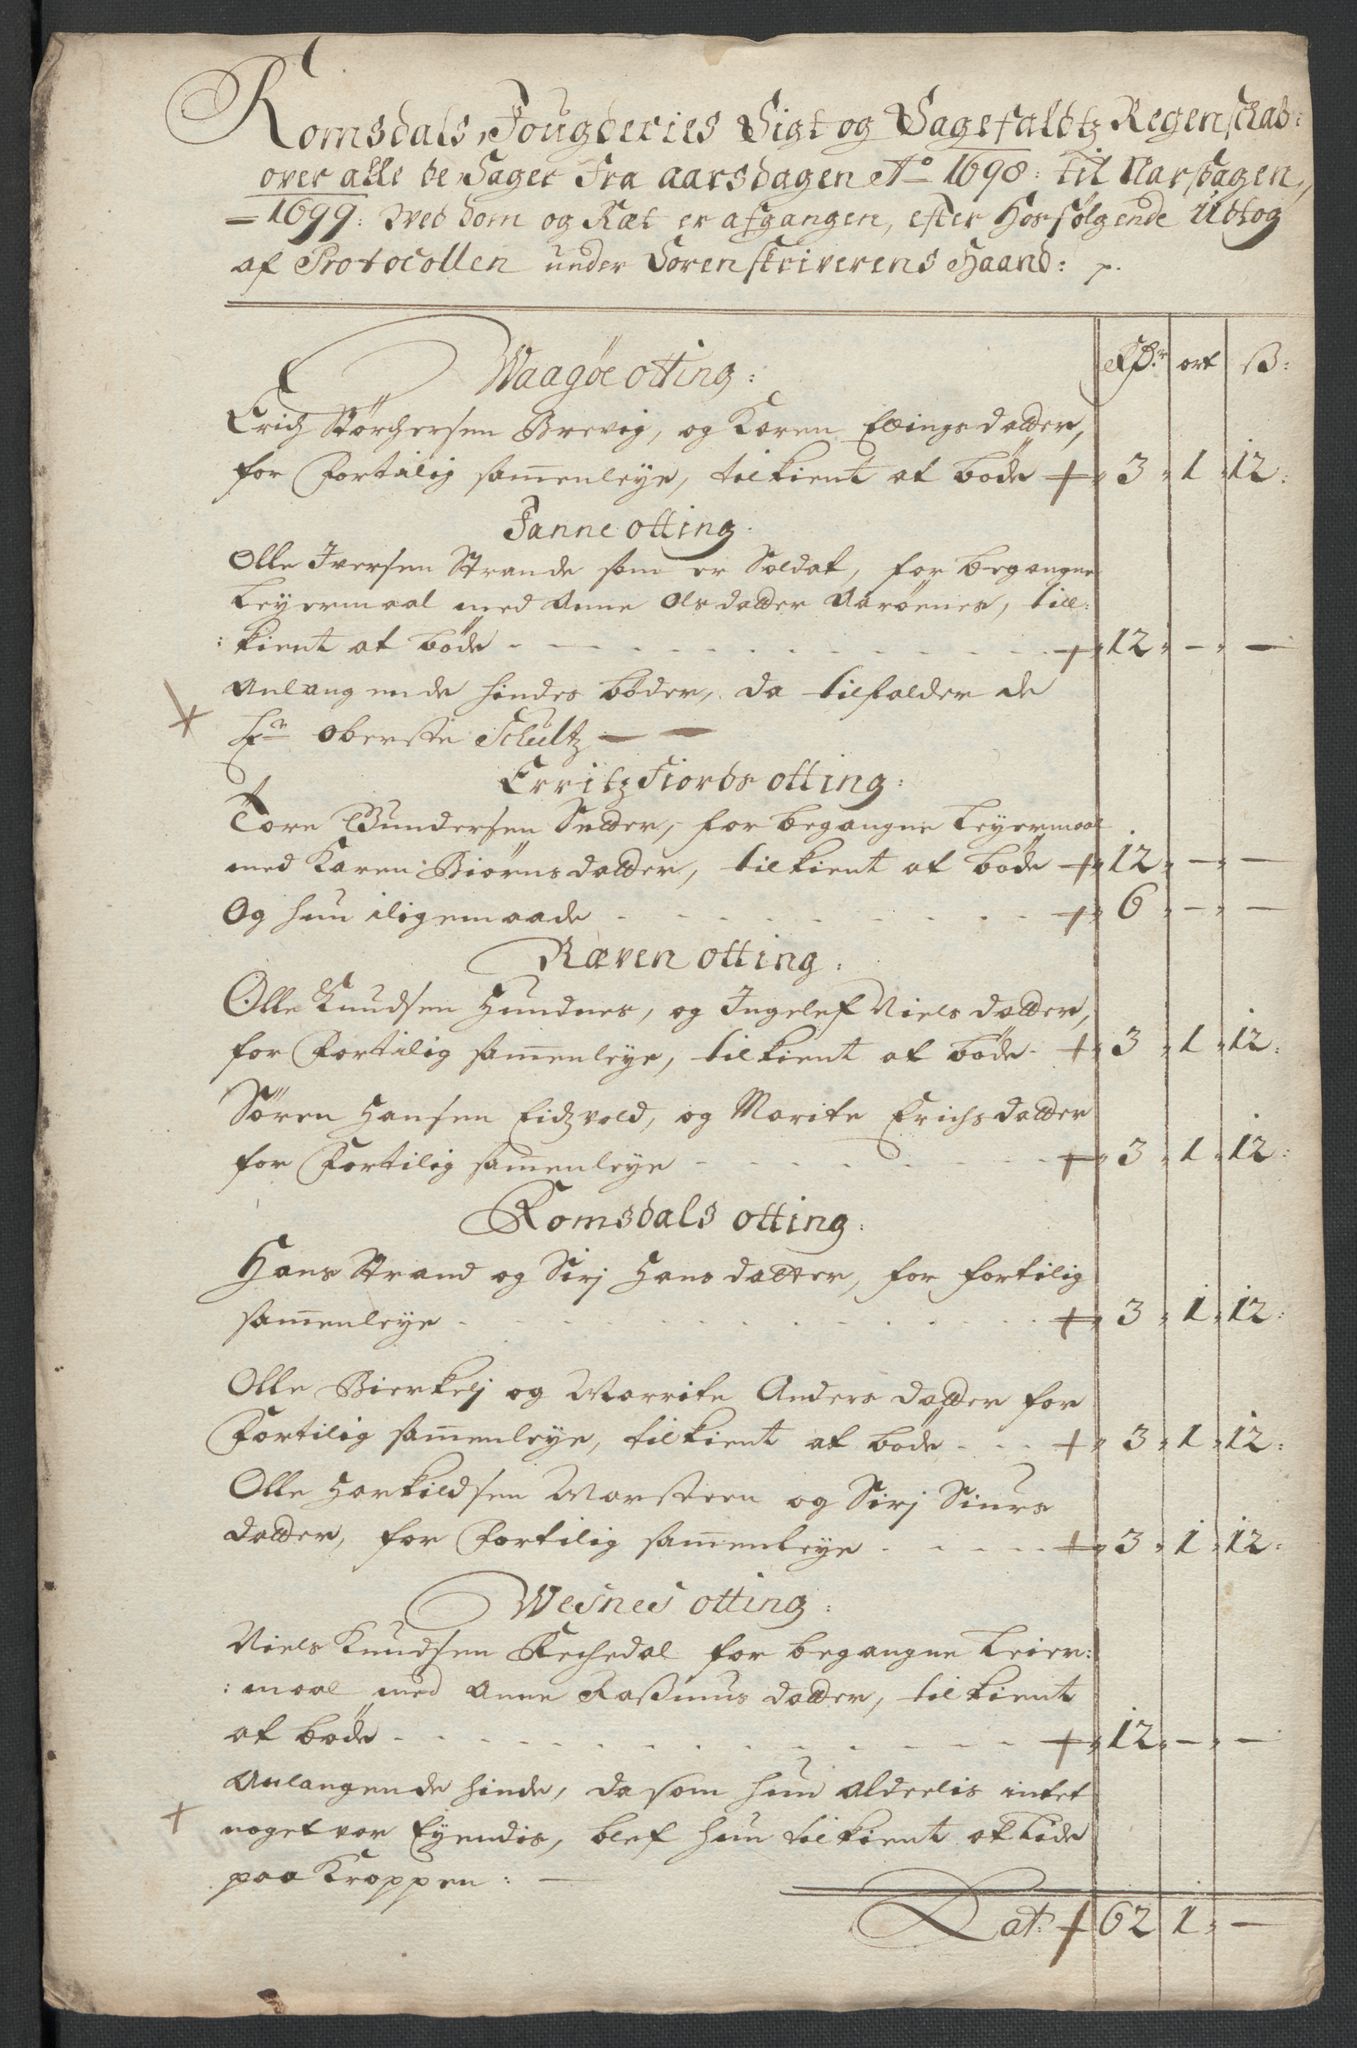 Romsdals Fougderies Sigt og Sagefaldtz Regenskab:
over alle de Sager Fra aarsdagen Ao 1698: til Aarsdagen
1699: Wed dom og Ræt er afgangen, efter Hosfølgende Udtog
af Protocollen under Sorenskriverens Haand:
Rdr ort ß:
Waagøe otting:
Erich Størchersen Brevig, og Karen Ellingsdatter,
for Fortilig samenleye, tilkient at bøde + 3 1 12:
Fanne otting.
Olle Iversen Strande som er Soldat, for begangne
Leyermaal med Anne Olsdatter Aarøenes, till:
:kient at bøde - - - + 12 - -
Anlangende hindes bøder, da tilfalder de
Hr oberste Schultz — —
Erritzfiords otting:
Tore Gundersen Setter, for begangne Leyermaal
med Karen Biørnsdatter, tilkient at bøde + 12 - -
Og hun iligemaade - - - + 6 - -
Ræven otting:
Olle Knudsen Hundnes, og Ingelef Nielsdatter,
for Fortilig samenleye, tilkient at bøde + 3 1 12:
Sören Hansen Eidzvold, og Marite Erichsdatter
for Fortilig samenleye - - - + 3 1 12:
Romsdals otting:
Hans Strand og Sirj Hansdatter, for fortilig
samenleye - - - + 3 1 12:
Olle Bierkelj og Marrite Andersdatter for
Fortilig samenleye, tilkient at bøde - - - + 3 1 12:
Olle Horkildsen Marsteen og Sirj Siurs
datter, for Fortilig samenleye - - - + 3 1 12:
Wesnes otting:
Niels Knudsen Rechedal for begangne Leier:
:maal med Anne Rasmus datter, tilkient
at bøde - - - + 12 - -
Anlangende hinde, da som hun alderlis intet
noget var Eyendis, blef hun tilkient at bøde
paa Kroppen: —
Lat: + 62 1 -